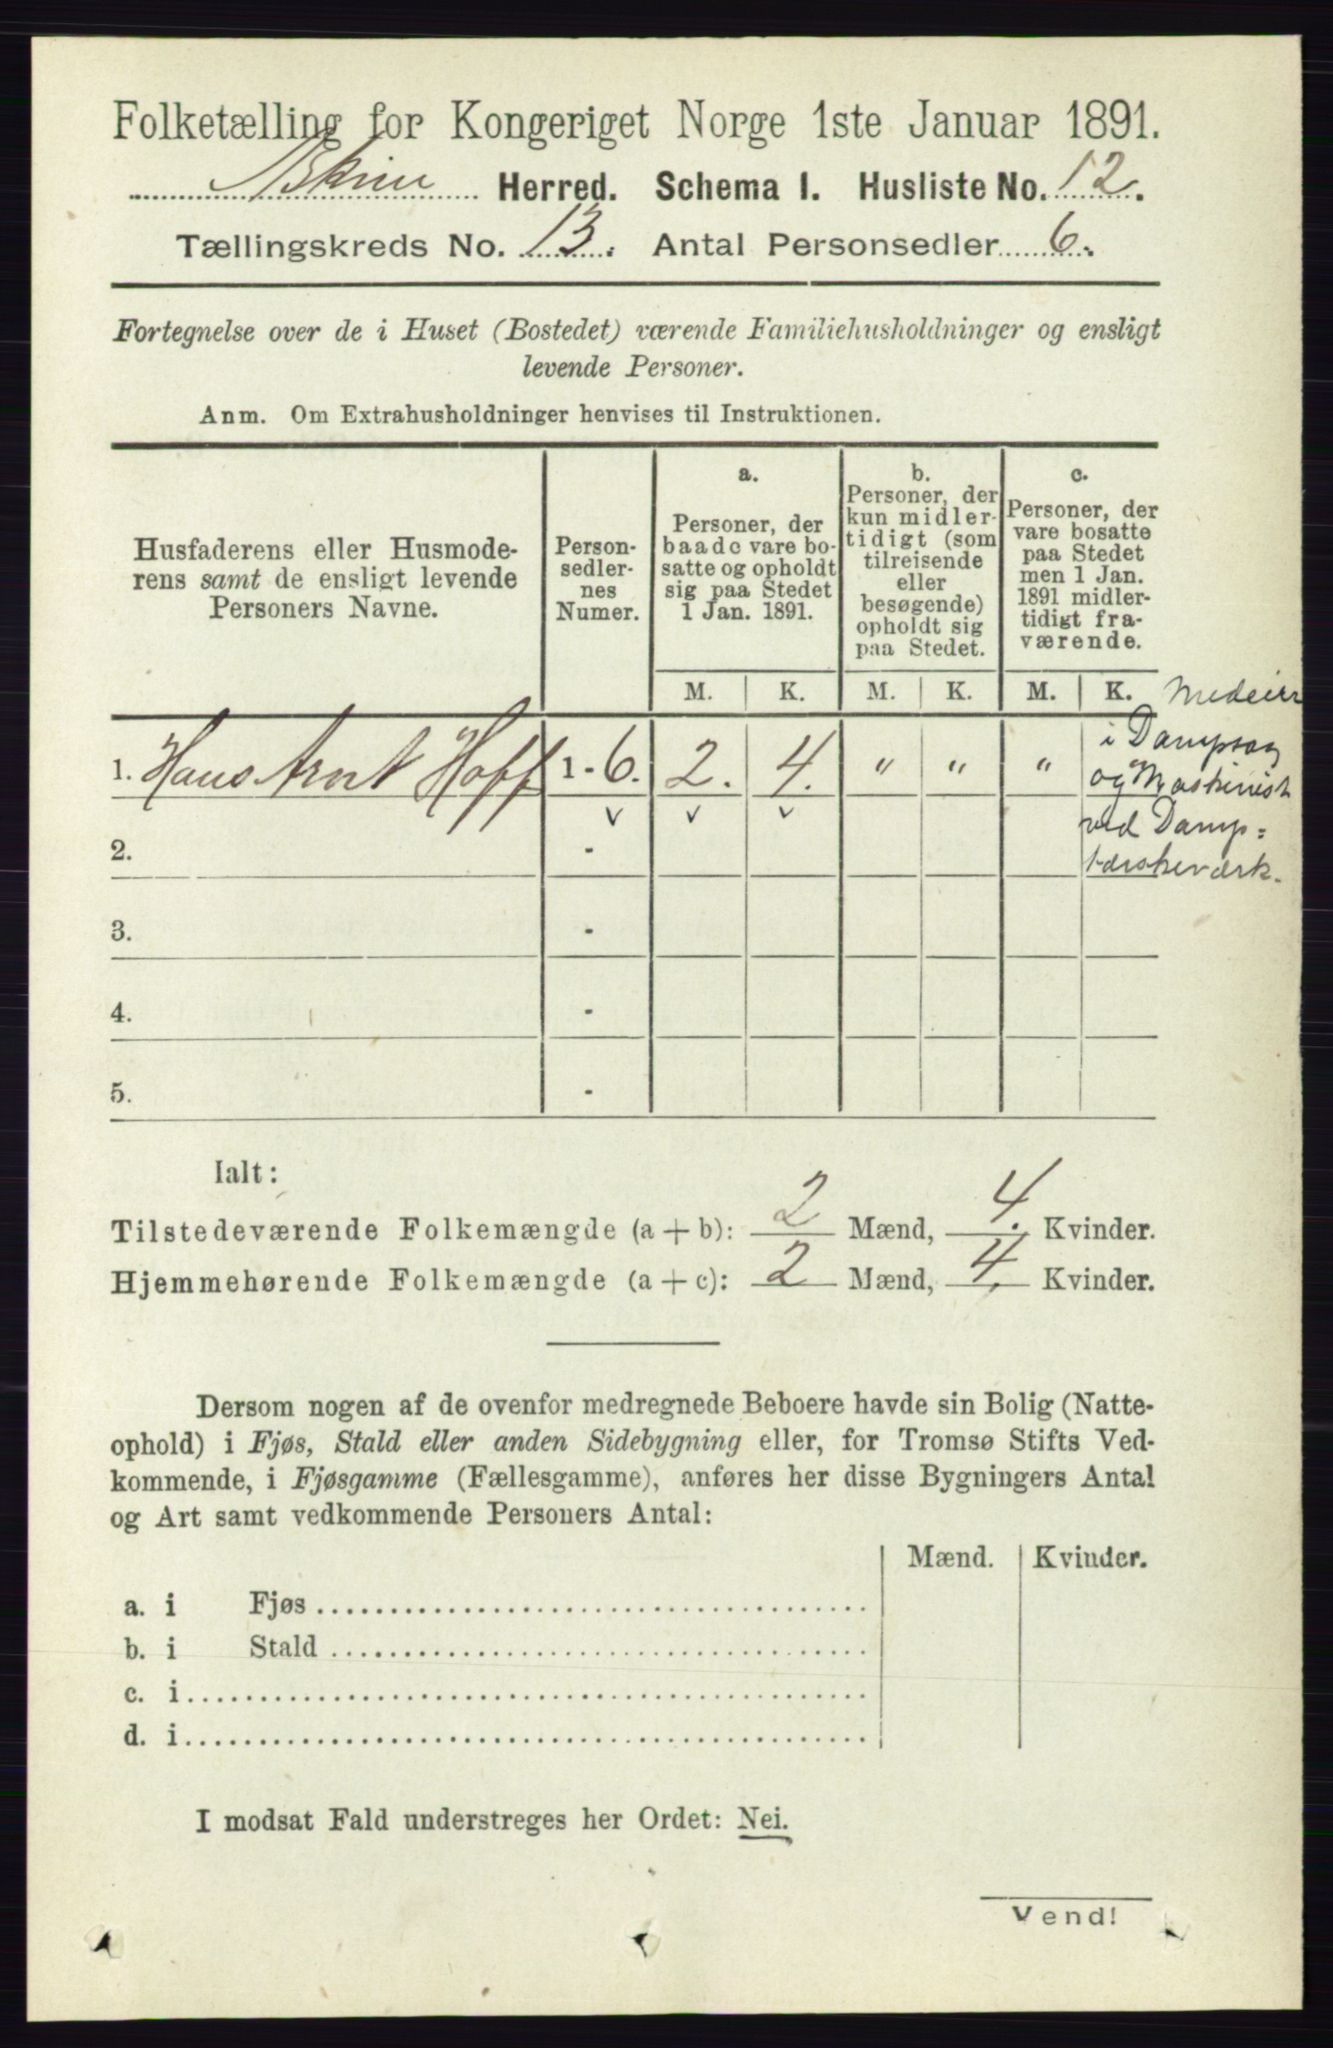 Folketælling for Kongeriget Norge 1ste Januar 1891.
Askim Herred. Schema I. Husliste No. 12.
Tællingskreds No. 13. Antal Personsedler 6.
Fortegnelse over de i Huset (Bostedet) værende Familiehusholdninger og ensligt
levende Personer.
Anm. Om Extrahusholdninger henvises til Instruktionen.
Husfaderens eller Husmode-
rens samt de ensligt levende
Personers Navne.
Person-
sedler-
nes
Numer.
a.
Personer, der
baade vare bo-
satte og opholdt
sig paa Stedet
1 Jan. 1891.
b.
Personer, der
kun midler-
tidigt (som
tilreisende
eller
besøgende)
opholdt sig
paa Stedet.
c.
Personer, der
vare bosatte
paa Stedet
men 1 Jan.
1891 midler-
tidigt fra-
værende.
M. K. M. K. M. K.
Medeier
i Dampsag
og Maskinist
ved Damp=
tærskeværk.
1. Hans Arnt Hoff 1 - 6. 2. 4. " " "
v v v
2. -
3. -
4. -
5. -
Ialt:
Tilstedeværende Folkemængde (a + b): 2 Mænd, 4. Kvinder.
Hjemmehørende Folkemængde (a + c): 2 Mænd, 4. Kvinder.
Dersom nogen af de ovenfor medregnede Beboere havde sin Bolig (Natte-
ophold) i Fjøs, Stald eller anden Sidebygning eller, for Tromsø Stifts Ved-
kommende, i Fjøsgamme (Fællesgamme), anføres her disse Bygningers Antal
og Art samt vedkommende Personers Antal:
Mænd. Kvinder.
a. i Fjøs
b. i Stald
c. i
d. i
I modsat Fald understreges her Ordet: Nei.
Vend!